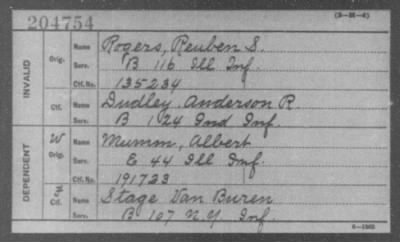 204754
(3-M-4)
INVALID
Orig. Name Rogers, Reuben S.
Serv. B 116 Ill Inf.
Ctf. No. 135234
Ctf. Name Dudley Anderson R
Serv. B 124 Ind Inf
DEPENDENT
W Orig. Name Mumm, Albert
Serv. E 44 Ill Inf.
Ctf. No. 191733
Ctf. Name Stage Van Buren
Serv. B 107 N.Y. Inf